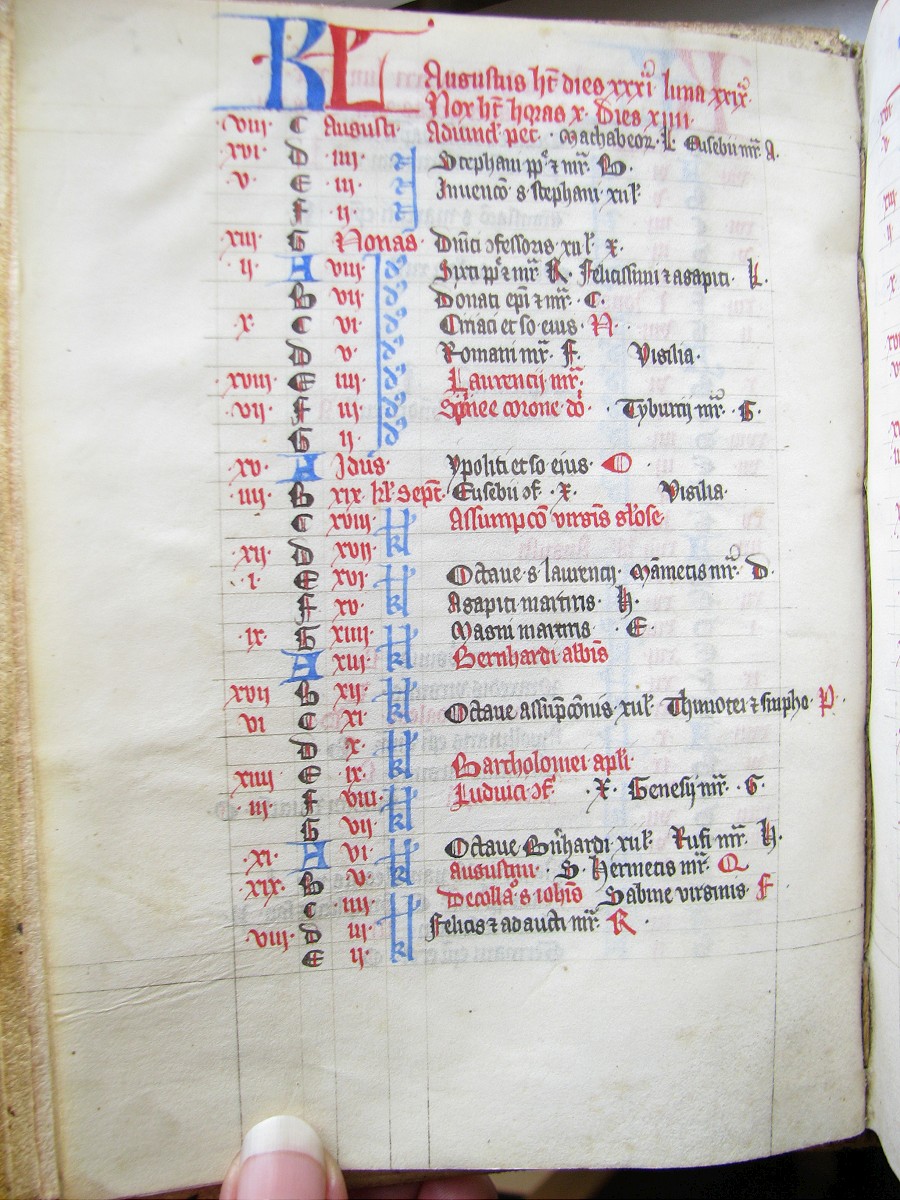 KL Augustus ht dies xxxi luna xxix
Nox ht horas x. Dies xiiii
viii C Augusti Aduincl pet. Machabeor. L Eusebii mr. A.
xvi. D iiii Stephani pp et mr. B.
v. E iii Inuenco s stephani xii l'
F ii
xiii G Nonas Dnici ofessoris xii l' x.
ii A viii Sixti pp et mr. K. Felicissimi et agapiti. L.
B vii Donati epi et mr. C.
x C vi Ciriaci et so eius. N.
D v Romani mr. F. Vigilia.
xviii E iiii Laurencij mr.
vii F iii Spinee corone do. Tyburcij mr. G.
G ii
xv A Idus Ypoliti et so eius. O
iiii B xix kl Sept. Eusebii of. x. Vigilia.
C xviii Assumpco virginis gl'ose
xii D xvii
i E xvi Octaue s laurencij. Mametis mr. D.
F xv Agapiti martiris. H.
ix G xiiii Magni martiris. E
A xiii Bernhardi abbis
xvii B xii
vi C xi Octaue assupconis xii l' Thimotei et simpho. P.
D x
xiiii E ix Bartholomei apli
iii F viii Luduici of. X. Genesij mr. G.
G vii
xi A vi Octaue Bnhardi xii l' Rufi mr. H.
xix B v augustini. S. Hermetis mr. Q
C iiii Decolla s iohis Sabine virginis F
viii D iii Felicis et adaucti mr. R.
E ii